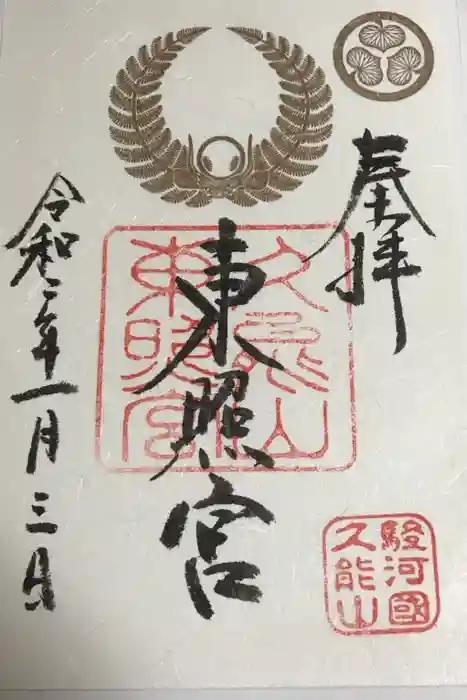 奉拝
東照宮
久能山
東照宮
令和二年一月三日
駿河國
久能山